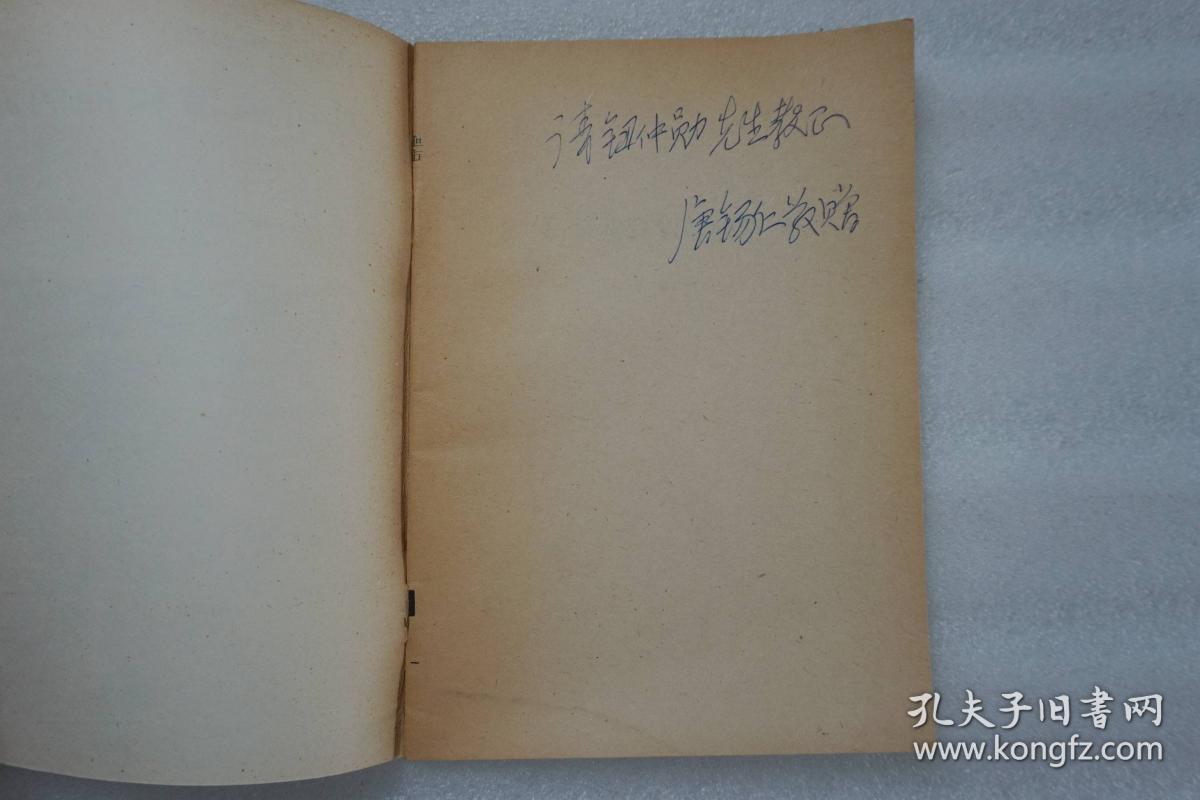 请钮仲勋先生教正
唐锡仁敬赠
孔夫子旧书网
www.kongfz.com